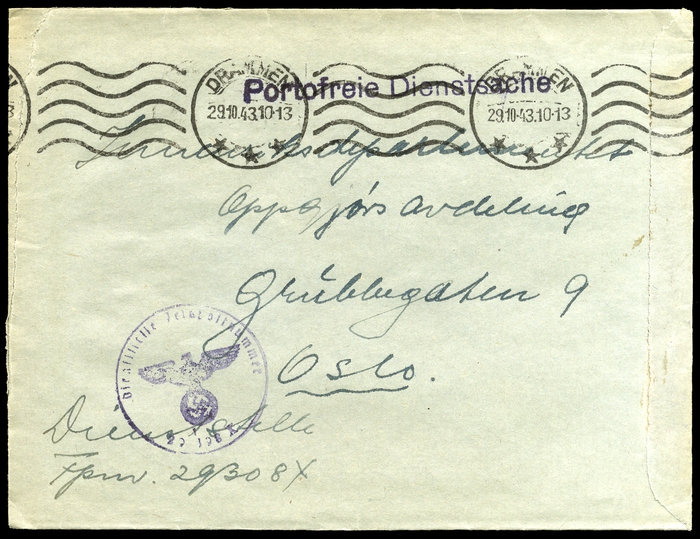 DRAMMEN
29.10.43.10-13
Portofreie Dienstsache
DRAMMEN
29.10-43.10-13
departementet
Oppgjörs avdeling
Grübbegaten 9
Oslo.
Dienststelle Feldpostnummer
Dienststelle
Fpnr. 29308X